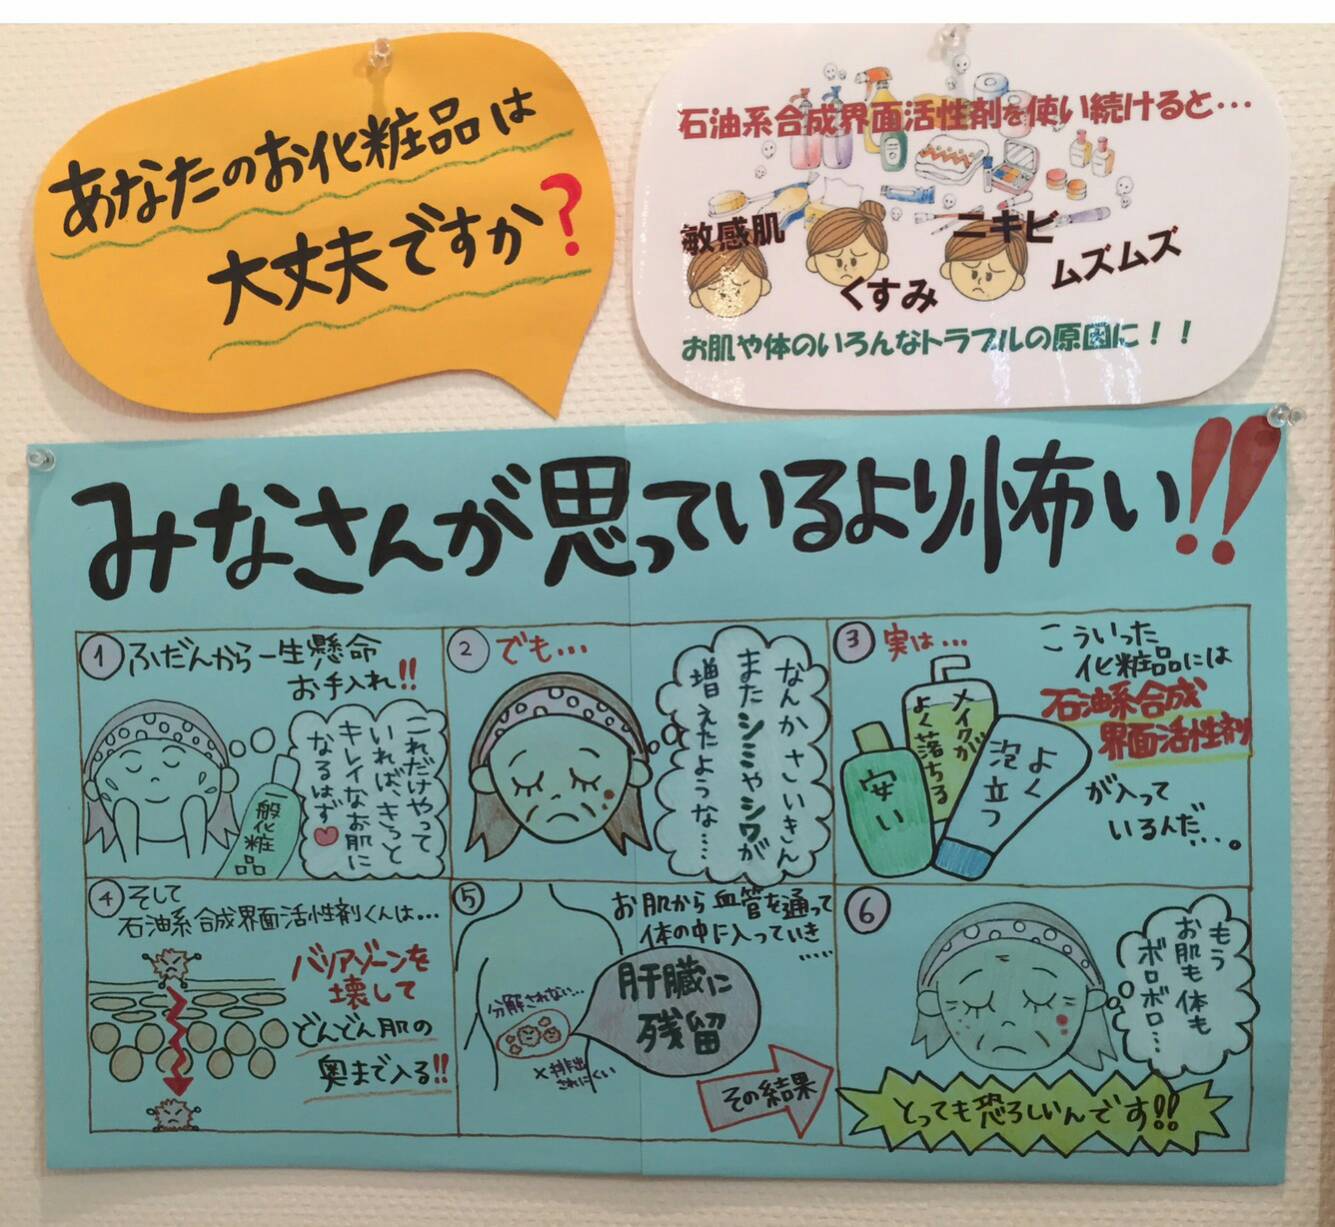 あなたのお化粧品は
大丈夫ですか?
石油系合成界面活性剤を使い続けると…
敏感肌
くすみ
ニキビ
ムズムズ
お肌や体のいろんなトラブルの原因に!!
みなさんが思っているより怖い!!
①ふだんから一生懸命
お手入れ!!
これだけやって
いれば、きっと
キレイなお肌に
なるはず♥
一般化粧品
②でも…
なんかさいきん
またシミやシワが
増えたような…
③実は…
こういった
化粧品には
石油系合成
界面活性剤
が入って
いるんだ…。
安い
メイクが
よく落ちる
よく
泡立つ
④そして
石油系合成界面活性剤くんは…
バリアゾーンを
壊して
どんどん肌の
奥まで入る!!
⑤
お肌から血管を通って
体の中に入っていき
……
分解されない…
×排出
されにくい
肝臓に
残留
その結果
⑥
もう
お肌も体も
ボロボロ…
とっても恐ろしいんです!!